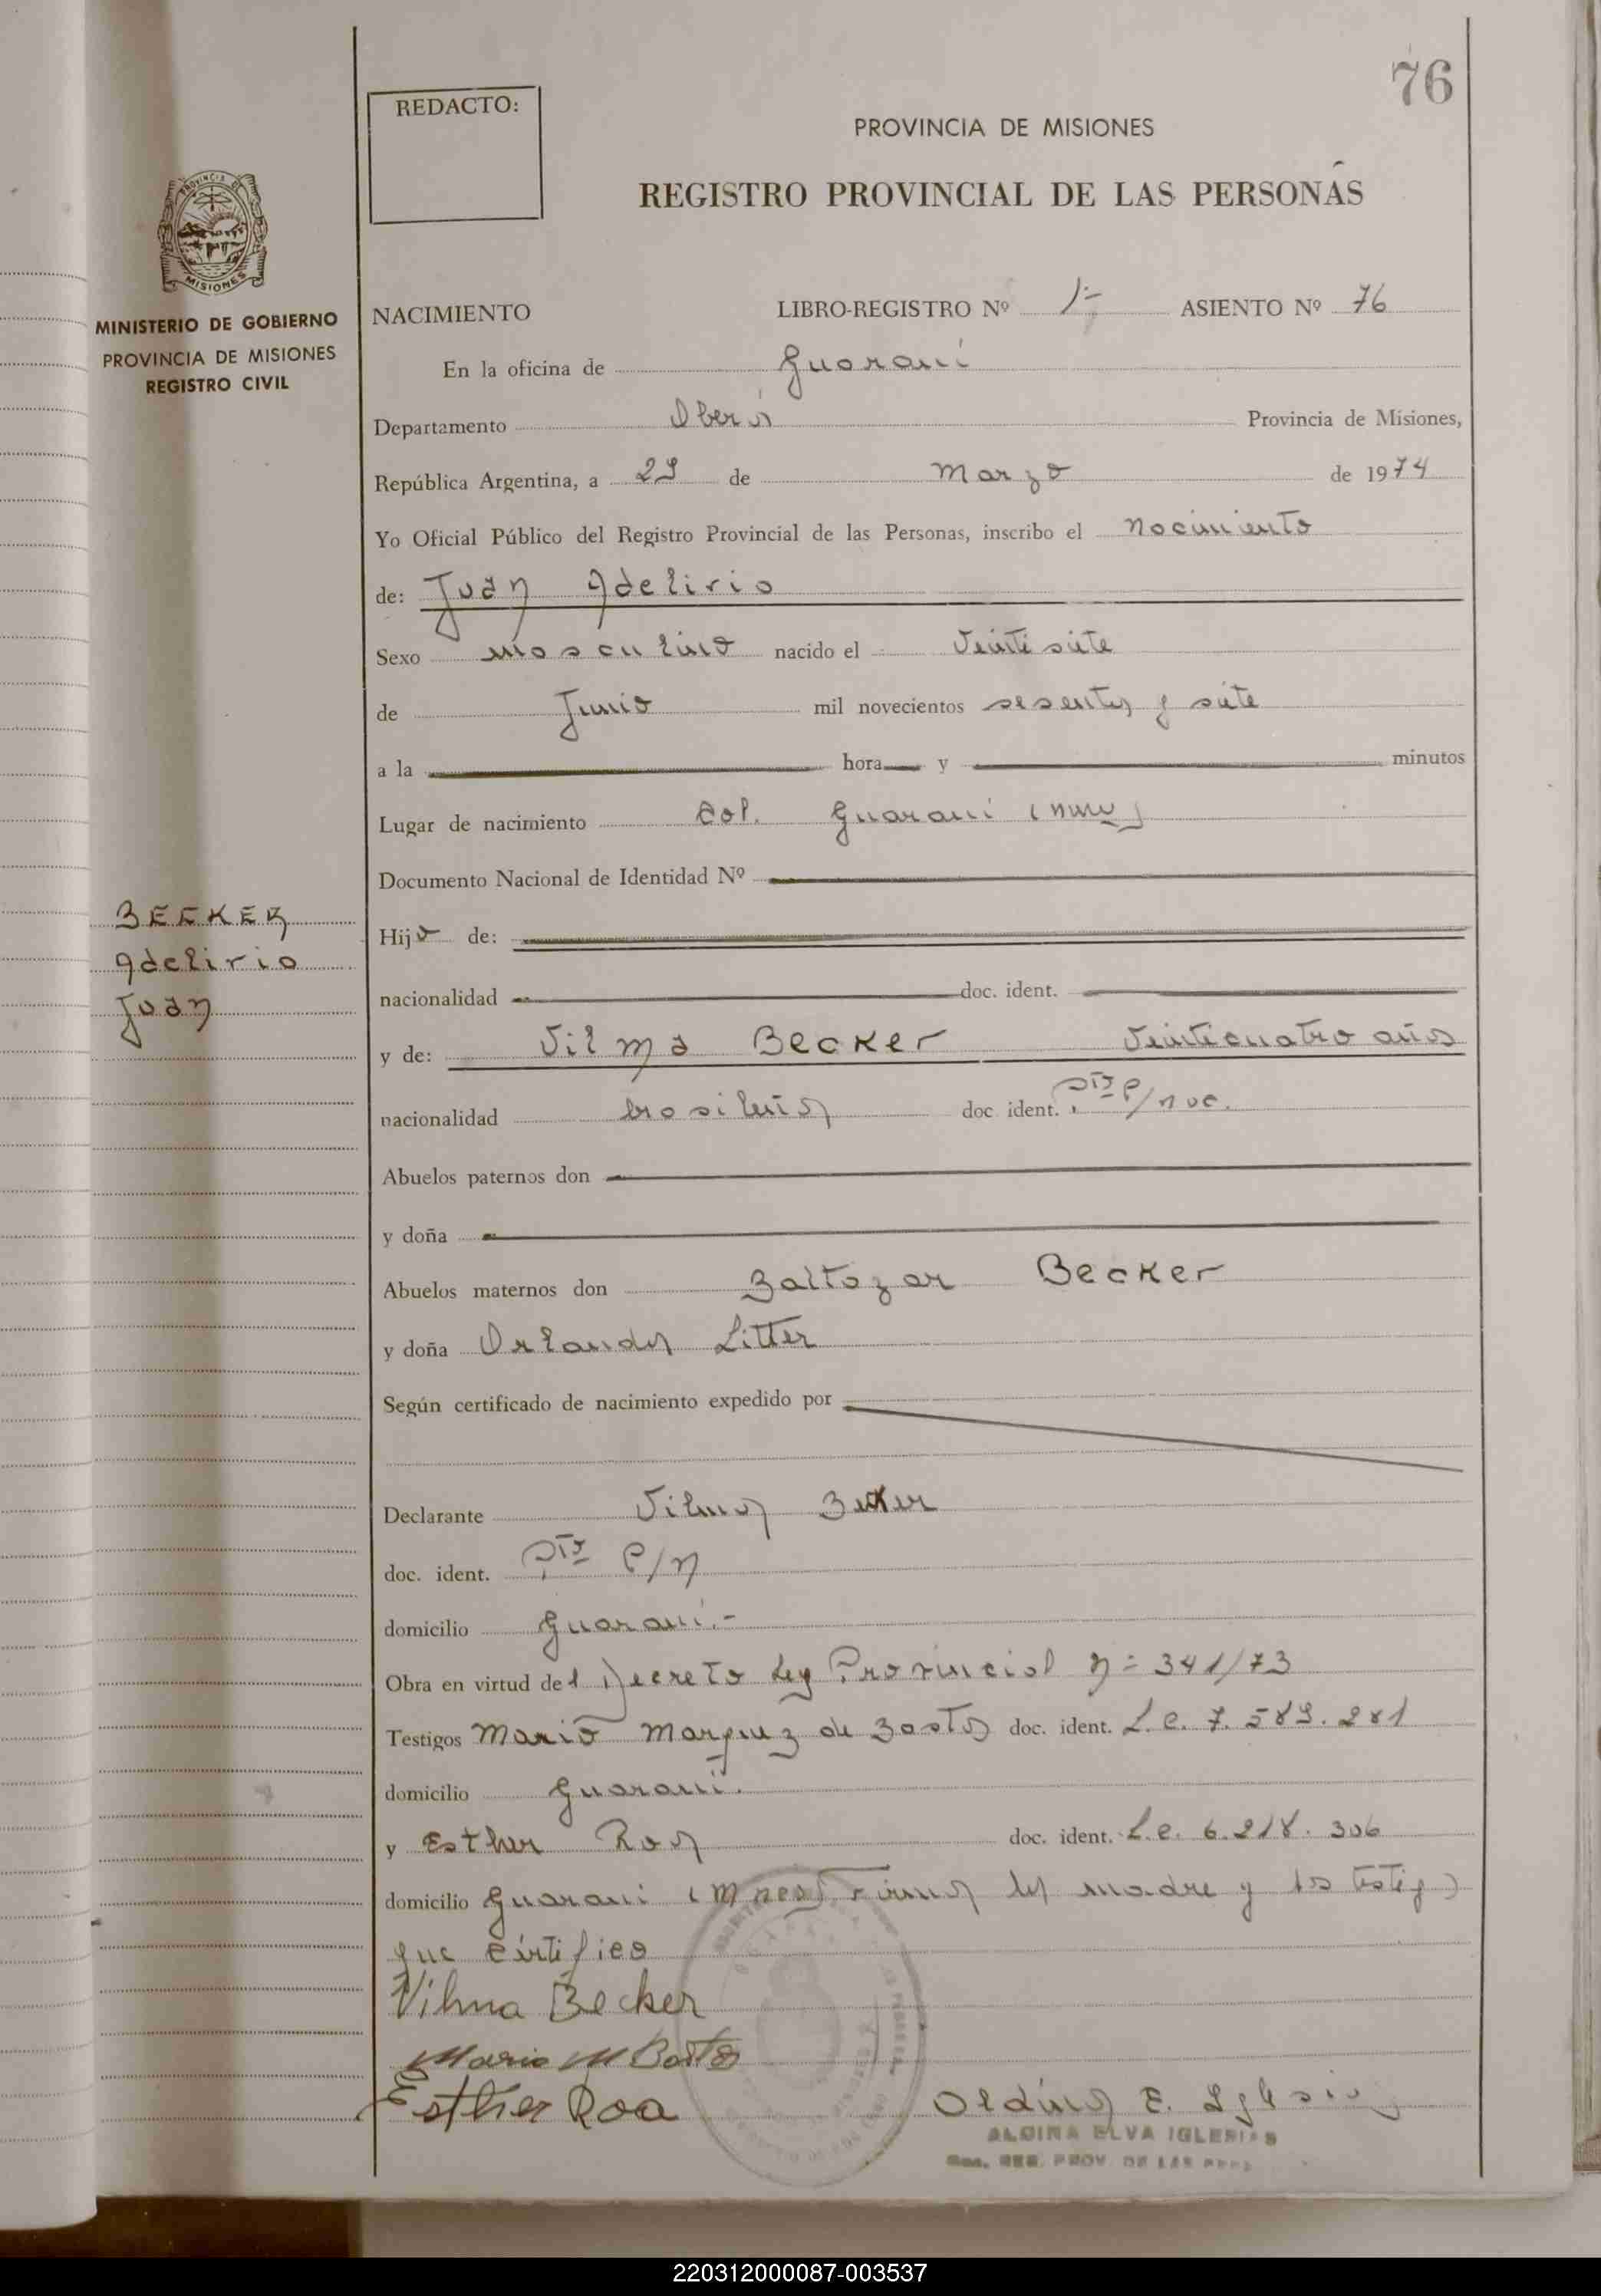 76
REDACTO:
PROVINCIA DE MISIONES
REGISTRO PROVINCIAL DE LAS PERSONAS
PROVINCIA DE
MISIONES
MINISTERIO DE GOBIERNO
PROVINCIA DE MISIONES
REGISTRO CIVIL
NACIMIENTO LIBRO-REGISTRO Nº 1- ASIENTO Nº 76
En la oficina de Guaraní
Departamento Oberá Provincia de Misiones,
República Argentina, a 29 de Marzo de 1974
Yo Oficial Público del Registro Provincial de las Personas, inscribo el Nacimiento
de: Juan Adelirio
Sexo masculino nacido el Veintisiete
de Junio mil novecientos sesenta y siete
a la hora y minutos
Lugar de nacimiento Col. Guaraní
Documento Nacional de Identidad Nº
BECKER
Adelirio
Juan
Hijo de:
nacionalidad doc. ident.
y de: Vilma Becker Veinticuatro años
nacionalidad brasileña doc ident.
Abuelos paternos don
y doña
Abuelos maternos don Baltazar Becker
y doña Orlanda Litter
Según certificado de nacimiento expedido por
Declarante Vilma Becker
doc. ident.
domicilio Guaraní.-
Obra en virtud del Decreto Ley Provincial n= 341/73
Testigos Mario Marquez de Bastos doc. ident. L.e. 7.589.281
domicilio Guaraní.
y Esther Roa doc. ident. L.e. 6.218.306
domicilio Guaraní (Mnes) Firma la madre y los testig)
que certifico
Vilma Becker
Mario M Bastos
Esther Roa Aldina E. Iglesias
ALDINA ELVA IGLESIAS
REG. PROV. DE LAS PERS
220312000087-003537